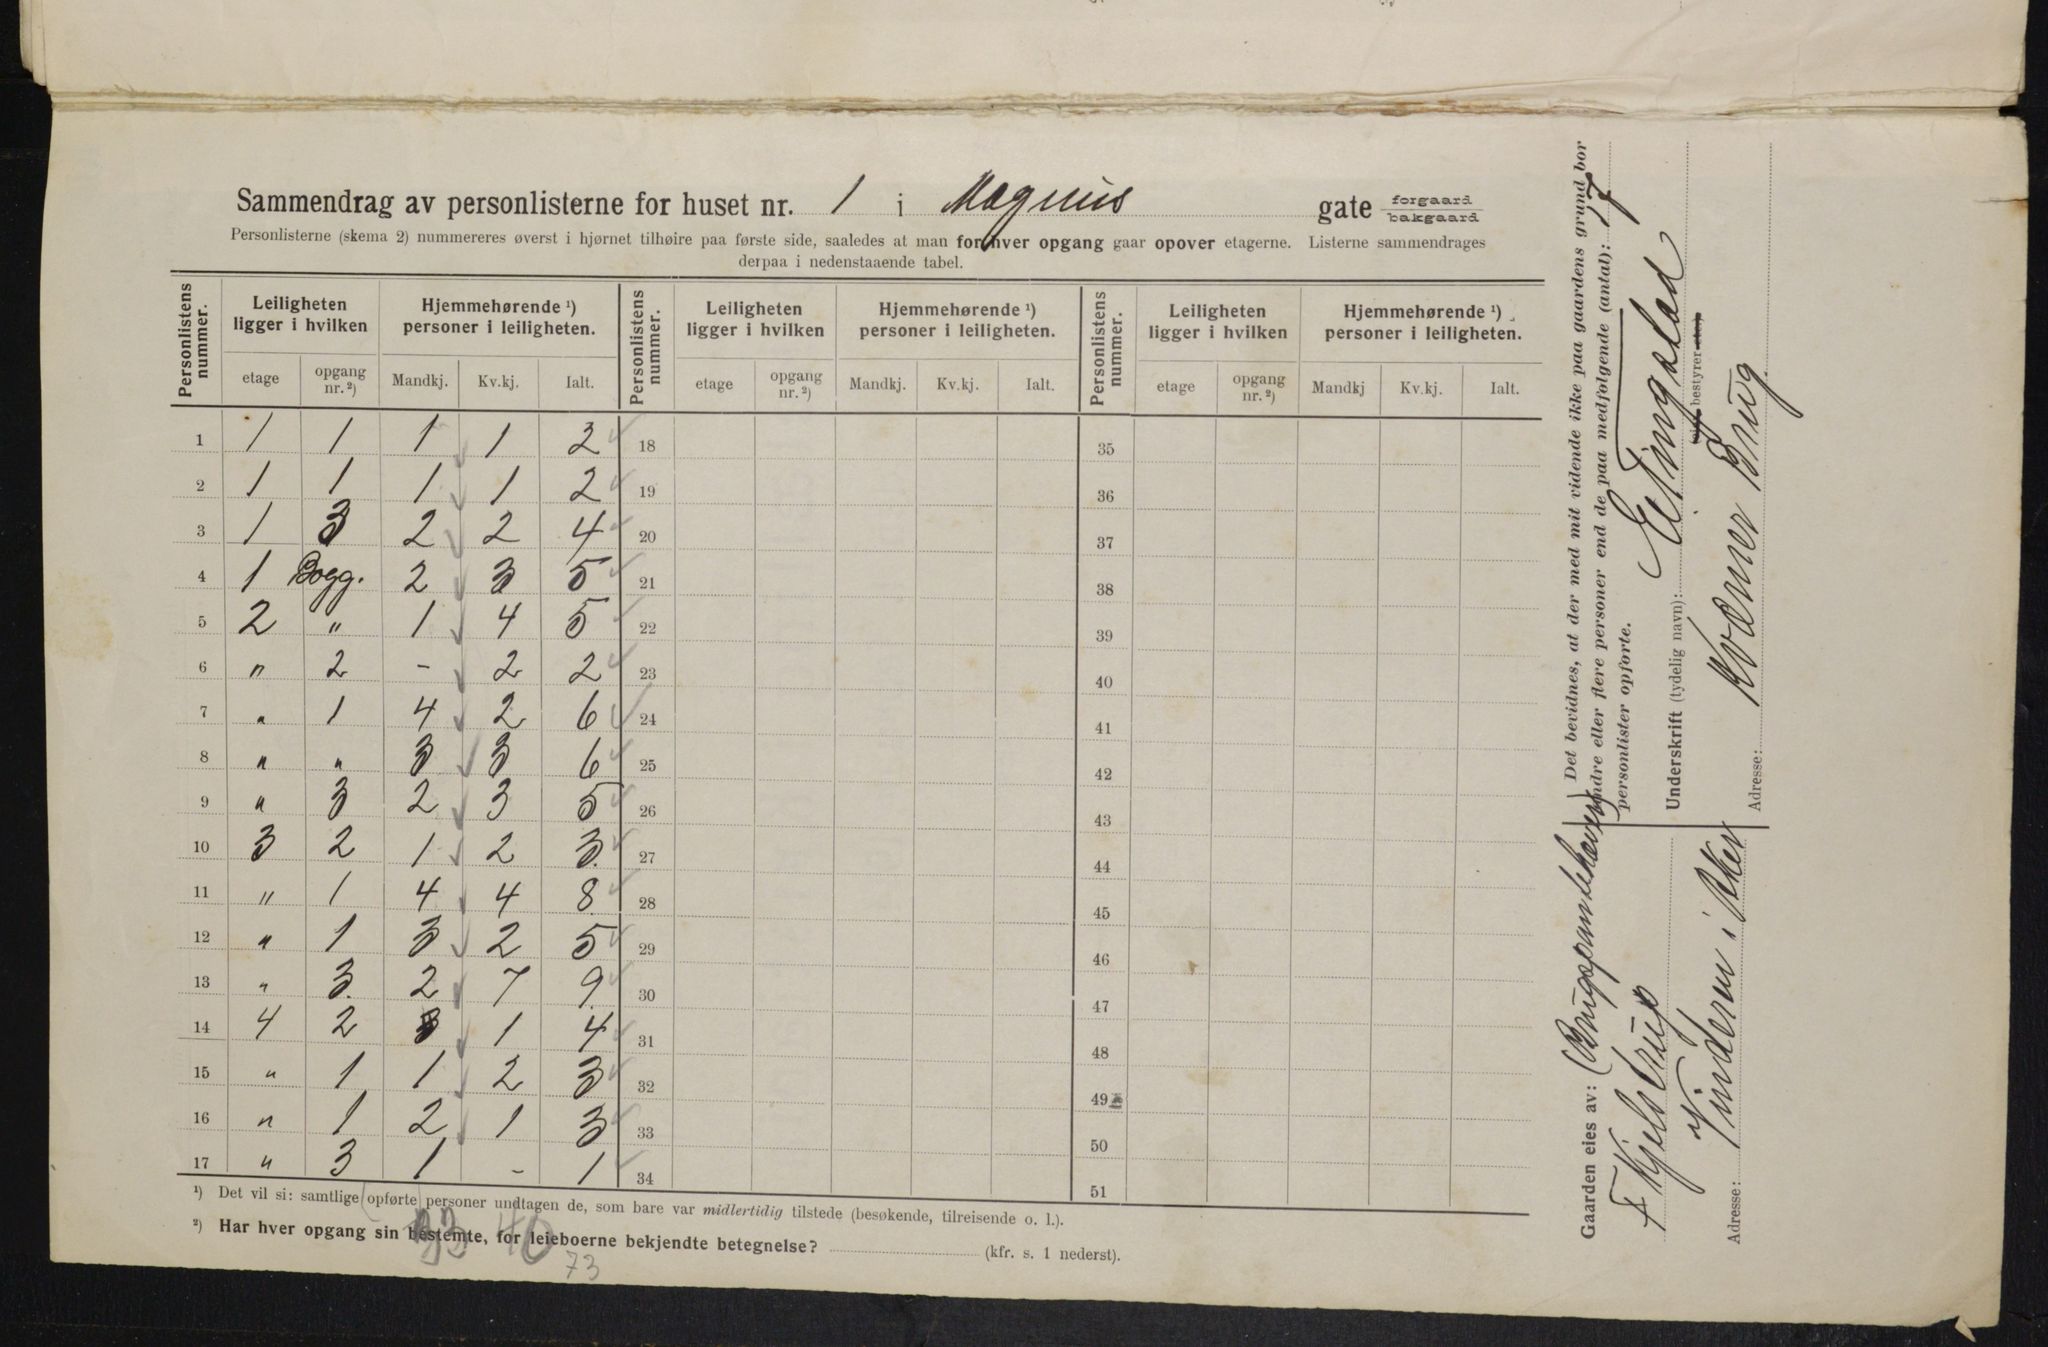 Sammendrag av personlisterne for huset nr. 1 i Magnus gate forgaard bakgaard
Personlisterne (skema 2) nummereres øverst i hjørnet tilhøire paa første side, saaledes at man for hver opgang gaar opover etagerne. Listerne sammendrages
derpaa i nedenstaaende tabel.
Personlistens nummer. Leiligheten ligger i hvilken Hjemmehørende ¹) personer i leiligheten. Personlistens nummer. Leiligheten ligger i hvilken Hjemmehørende ¹) personer i leiligheten. Personlistens nummer. Leiligheten ligger i hvilken Hjemmehørende ¹) personer i leiligheten.
etage opgang nr. ²) Mandkj. Kv.kj. Ialt. etage opgang nr. ²) Mandkj. Kv.kj. Ialt. etage opgang nr. ²) Mandkj Kv.kj. Ialt.
1 1 1 1 1 2 18 35
2 1 1 1 1 2 19 36
3 1 3 2 2 4 20 37
4 1 Bogg. 2 3 5 21 38
5 2 " 1 4 5 22 39
6 " 2 - 2 2 23 40
7 " 1 4 2 6 24 41
8 " " 3 3 6 25 42
9 " 3 2 3 5 26 43
10 3 2 1 2 3 27 44
11 " 1 4 4 8 28 45
12 " 1 3 2 5 29 46
13 " 3 2 7 9 30 47
14 4 2 3 1 4 31 48
15 " 1 1 2 3 32 49
16 " 1 2 1 3 33 50
17 " 3 1 - 1 34 51
¹) Det vil si: samtlige (opførte) personer undtagen de, som bare var midlertidig tilstede (besøkende, tilreisende o. l.).
²) Har hver opgang sin bestemte, for leieboerne bekjendte betegnelse? (kfr. s. 1 nederst).
33 40
73
Det bevidnes, at der med mit vidende ikke paa gaardens grund bor
andre eller flere personer end de paa medfølgende (antal): 17
personlister opførte.
Underskrift (tydelig navn):
bestyrer etc.).
Adresse: Kværner Brug
Gaarden eies av: (
F Kjelstrup
Adresse: Vinderen i Aker